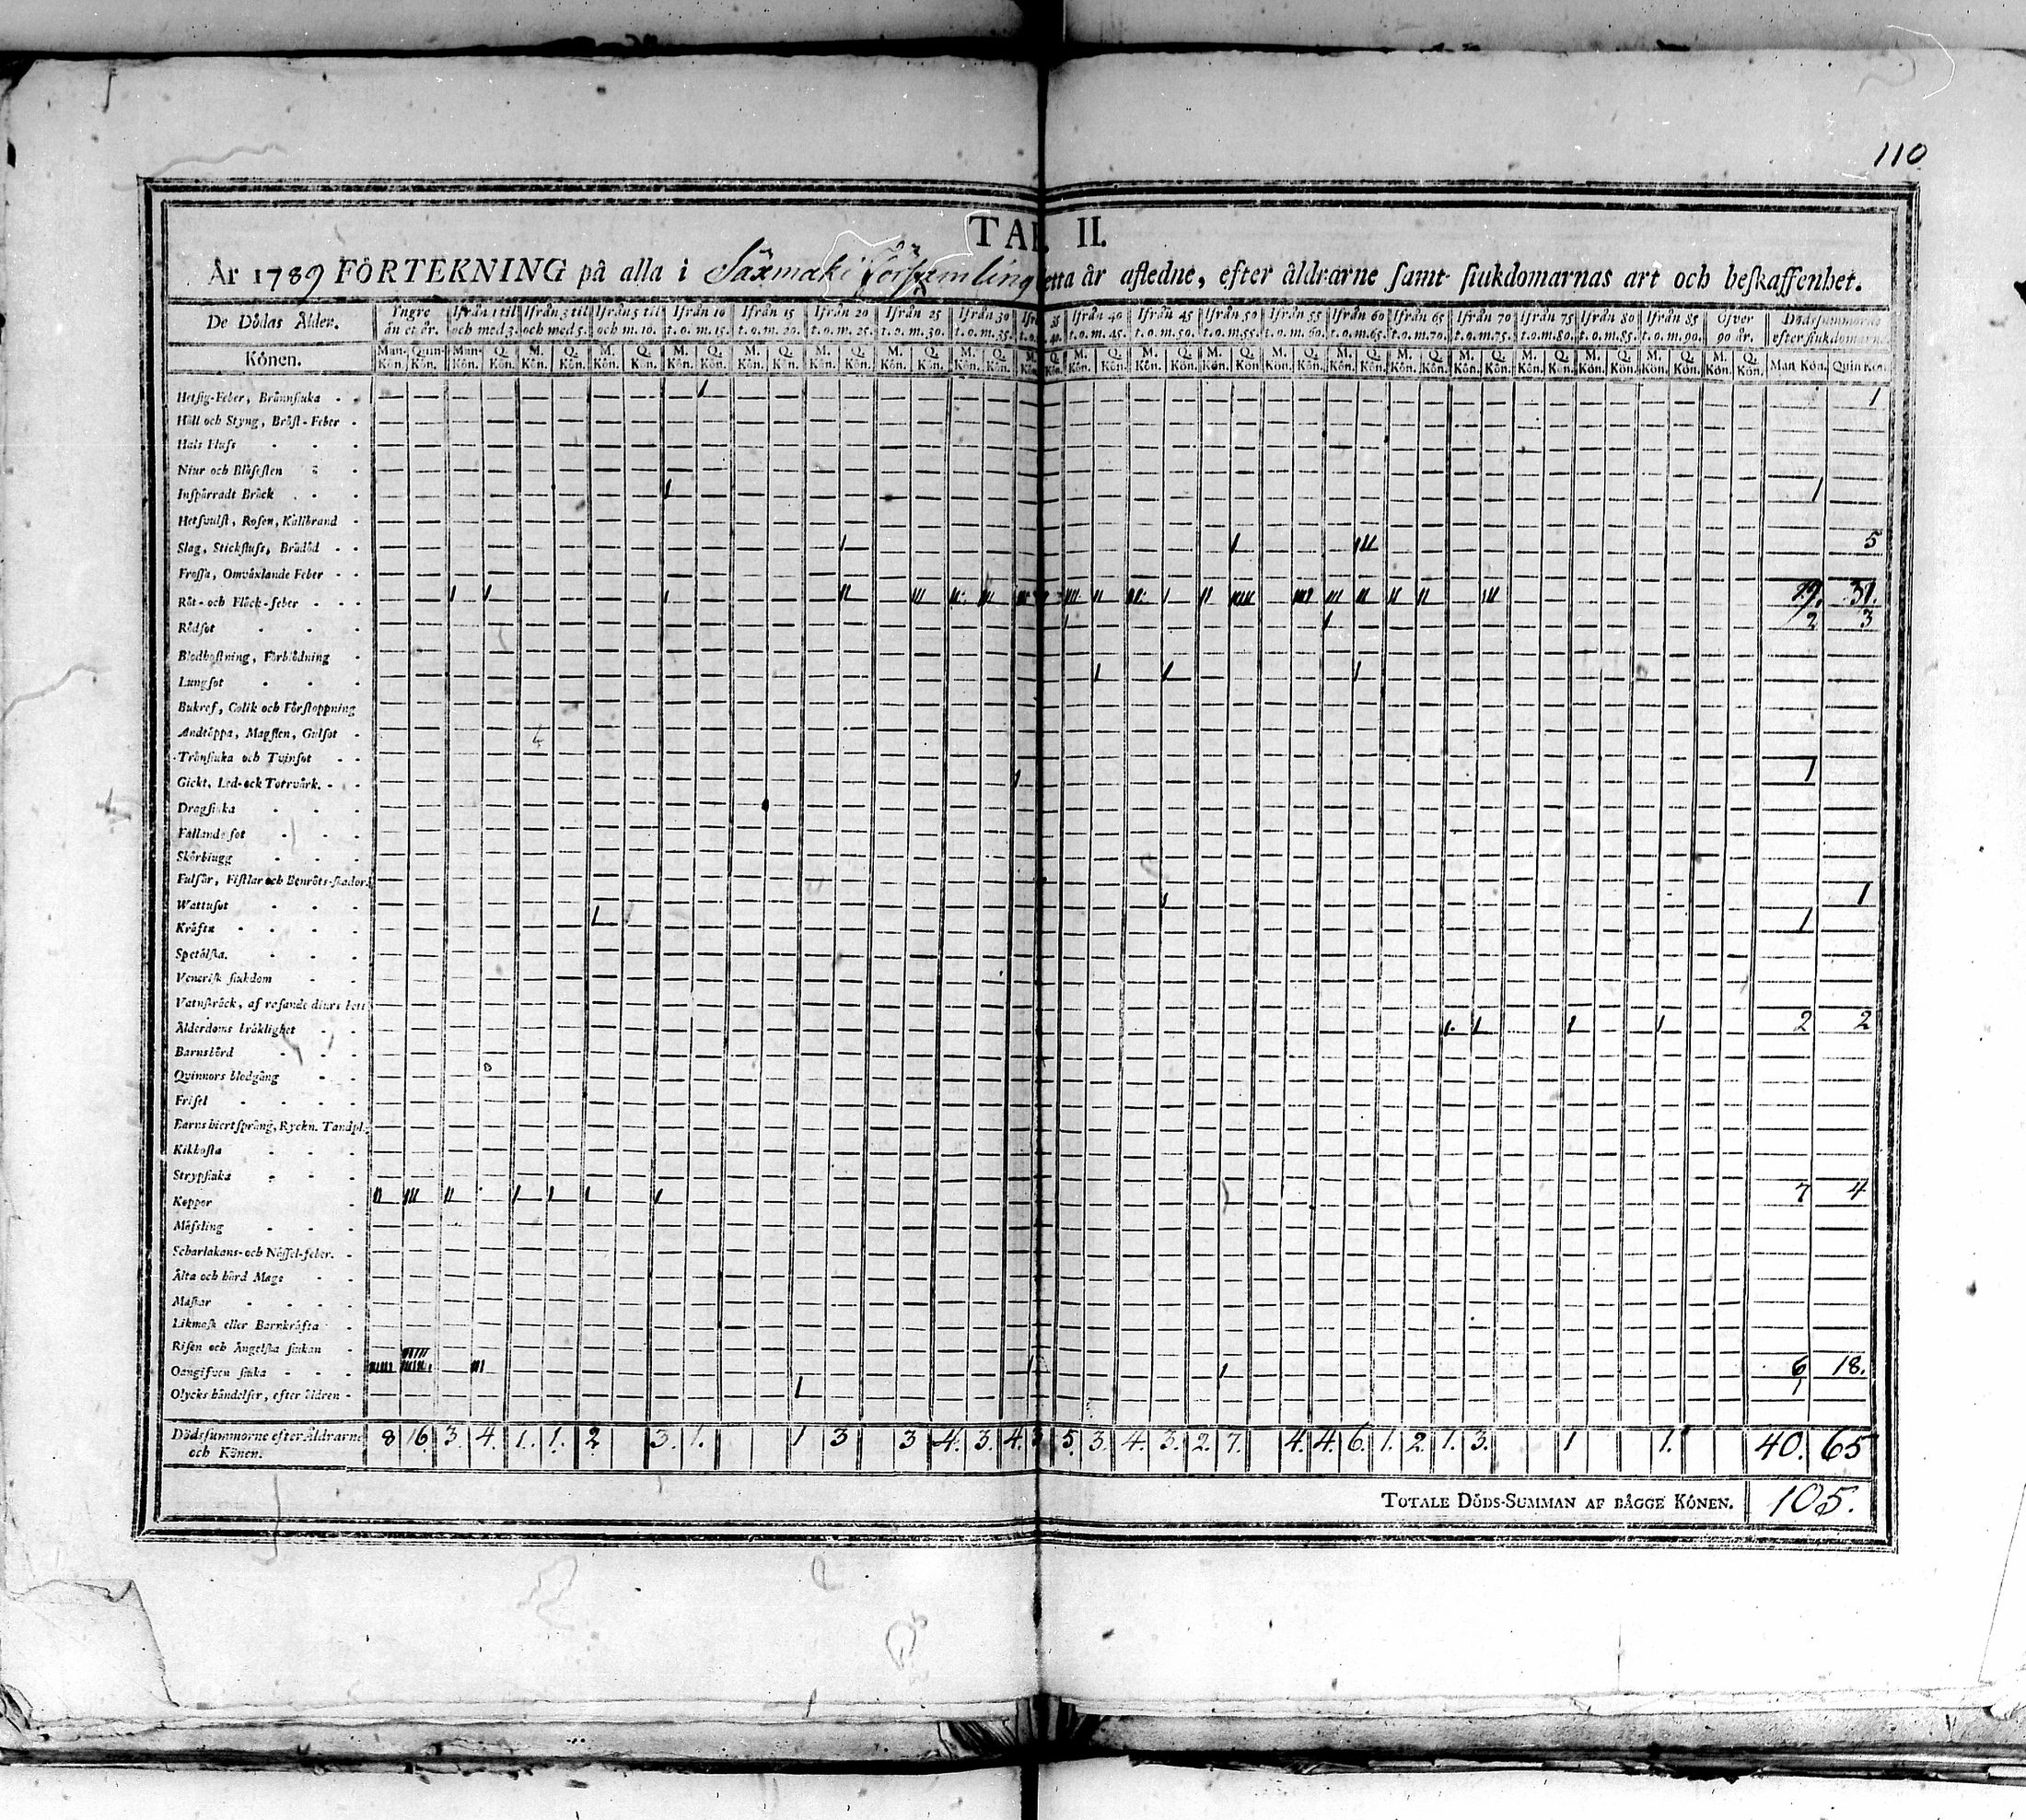 110
TAB. II.
År 1789 FÖRTEKNING på alla i Säxmäki Församling detta år afledne, efter åldrarne samt siukdomarnas art och beskaffenhet.
De Dödas Ålder. Yngre än et år. Ifrån 1 til och med 3. Ifrån 3 til och med 5. Ifrån 5 til och m. 10. Ifrån 10 t. o. m. 15. Ifrån 15 t. o. m. 20. Ifrån 20 t. o. m. 25. Ifrån 25 t. o. m. 30. Ifrån 30 t. o. m. 35. 35 40. Ifrån 40 t. o. m. 45. Ifrån 45 t. o. m. 50. Ifrån 50 t. o. m. 55. Ifrån 55 t. o. m. 60. Ifrån 60 t. o. m. 65. Ifrån 65 t. o. m. 70. Ifrån 70 t. o. m. 75. Ifrån 75 t. o. m. 80. Ifrån 80 t. o. m. 85. Ifrån 85 t. o. m. 90. Öfver 90 år. Dödssummorne efter siukdomarn.
Könen. Man-Kön. Quin-Kön. Man-Kön. Q. Kön. M. Kön. Q. Kön. M. Kön. Q. Kön. M. Kön. Q. Kön. M. Kön. Q. Kön. M. Kön. Q. Kön. M. Kön. Q. Kön. M. Kön. Q. Kön. M. Kön. Q. Kön. M. Kön. Q. Kön. M. Kön. Q. Kön. M. Kön. Q. Kön. M. Kön. Q. Kön. M. Kön. Q. Kön. M. Kön. Q. Kön. M. Kön. Q. Kön. M. Kön. Q. Kön. M. Kön. Q. Kön. M. Kön. Q. Kön. M. Kön. Q. Kön. Man Kön. Quin Kön.
Hetsig-Feber, Brännsiuka 1 1
Håll och Styng, Bröst-Feber
Hals Fluss
Niur och Blåsesten
Inspärradt Bråck 1 1
Hetsvulst, Rosen, Kallbrand
Slag, Stickfluss, Brådöd 1 1 1 11 5
Frossa, Omväxlande Feber
Röt- och Fläck-feber 19. 31.
Rödsot 1 1 2 3
Blodhostning, Förblödning
Lungsot 1 1 1
Bukref, Colik och Förstoppning
Andtäppa, Magsten, Gulsot
Trånsiuka och Tvinsot
Gickt, Led- och Torrvärk. 1 1
Dragsiuka
Fallandesot
Skörbiugg
Fulsår, Fistlar och Benröts-skador
Wattusot 1 1
Kräfta 1 1
Spetälska.
Venerisk siukdom
Vatuskräck, af rasande diurs bett
Ålderdoms bräklighet 1. 1 1 1 2 2
Barnsbörd
Qvinnors blodgång
Frisel
Barns hiertsprång, Ryckn. Tandpl.
Kikhosta
Strypsiuka
Koppor 11 111 11 1 1 1 1 7 4
Mässling
Scharlakans- och Nässel-feber.
Älta och hård Mage
Maskar
Likmask eller Barnkräfta
Risen och Ängelska siukan
Oangifven siuka 6 18.
Olycks händelser, efter åldren 1 1
Dödssummorne efter Åldrarne och Könen. 8 16. 3. 4. 1. 1. 2 3. 1. 1 3 3 4. 3. 4. 3 5. 3. 4. 3. 2. 7. 4. 4. 6. 1. 2. 1. 3. 1 1. 40. 65
TOTALE DÖDS-SUMMAN AF BÅGGE KÖNEN. 105.